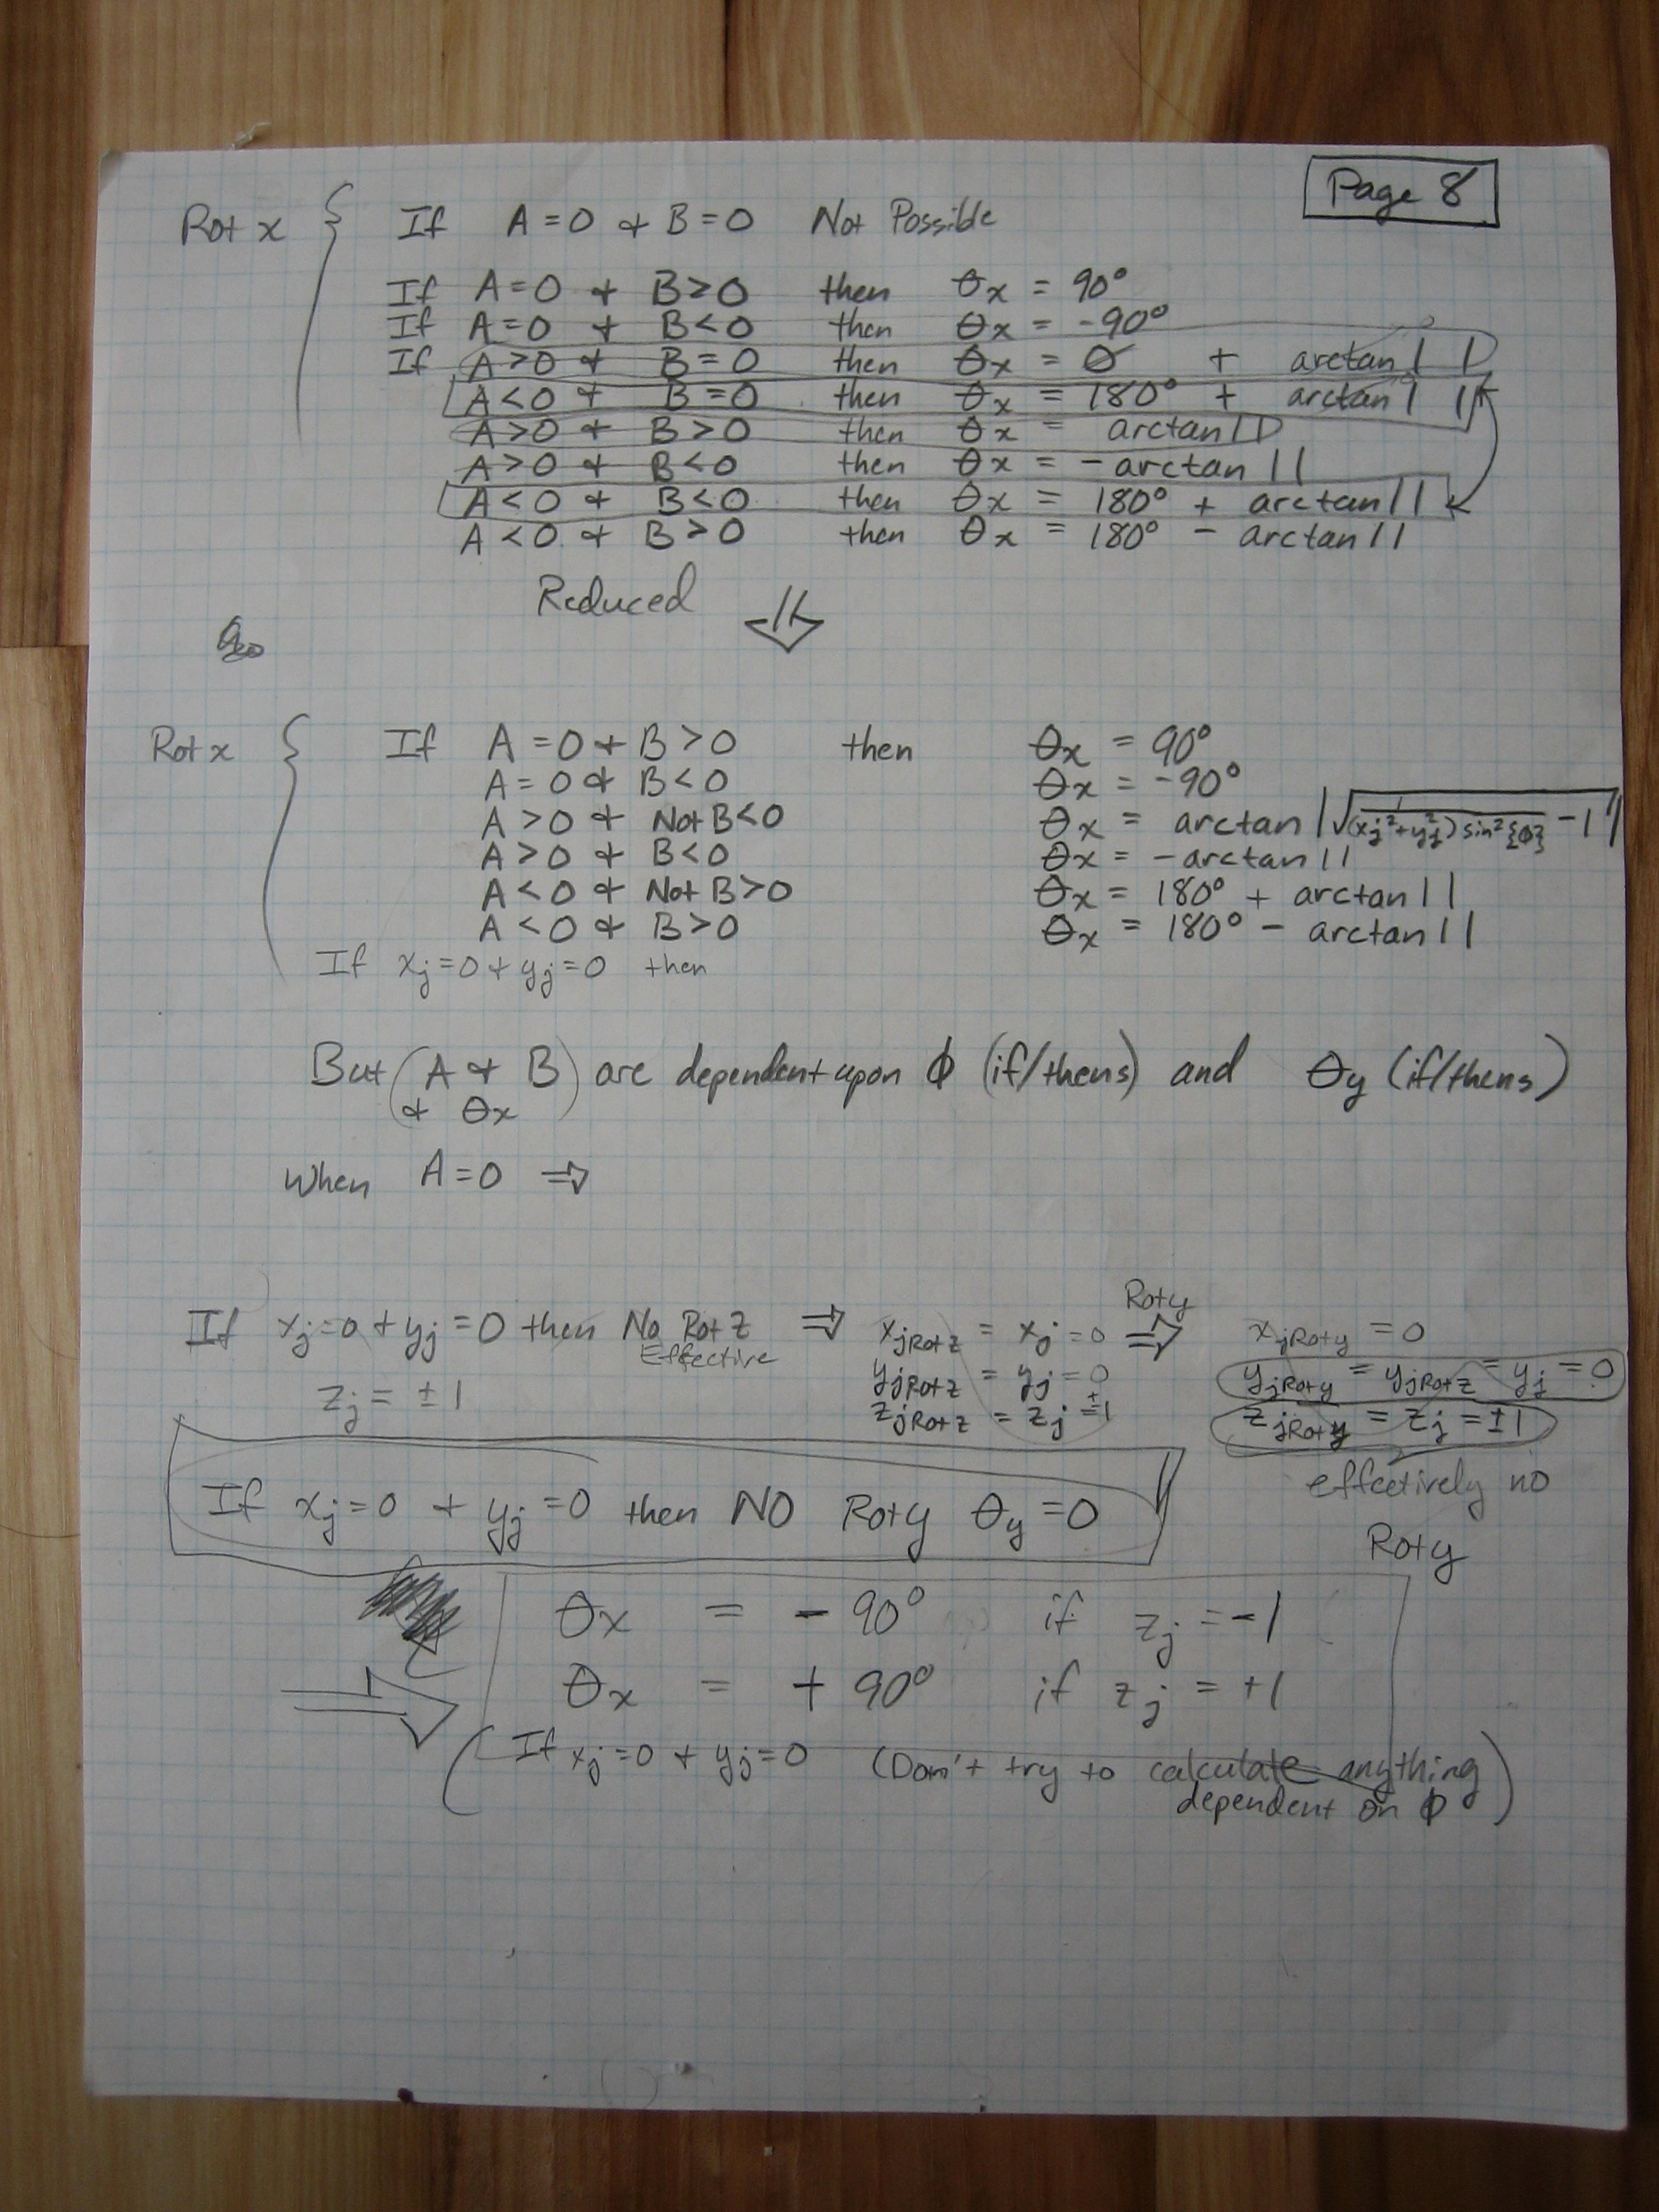 Page 8
Rot x { If A=0 + B=0 Not Possible
If A=0 + B>0 then θx = 90°
If A=0 + B<0 then θx = -90°
If A>0 + B=0 then θx = 0 + arctan| |
A<0 + B=0 then θx = 180° + arctan| |
A>0 + B>0 then θx = arctan| |
A>0 + B<0 then θx = -arctan| |
A<0 + B<0 then θx = 180° + arctan| |
A<0 + B>0 then θx = 180° - arctan| |
Reduced ⇓
Rot x { If A=0 + B>0 then θx = 90°
A=0 + B<0 θx = -90°
A>0 + Not B<0 θx = arctan|√(1/((xj²+yj²) sin²{ϕ}) - 1)|
A>0 + B<0 θx = -arctan| |
A<0 + Not B>0 θx = 180° + arctan| |
A<0 + B>0 θx = 180° - arctan| |
If xj=0 + yj=0 then
But (A + B) are dependent upon ϕ (if/thens) and θy (if/thens)
+ θx
When A=0 ⇒
Roty
If xj=0 + yj=0 then No Rot Z ⇒ xjRotz = xj = 0 ⇒ xjRoty = 0
Effective yjRotz = yj = 0 yjRoty = yjRotz = yj = 0
zj = ±1 zjRotz = zj = ±1 zjRoty = zj = ±1
effectively no
If xj=0 + yj=0 then NO Roty θy=0
Roty
θx = -90° if zj = -1
⇒ θx = +90° if zj = +1
(If xj=0 + yj=0 (Don't try to calculate anything
dependent on ϕ)